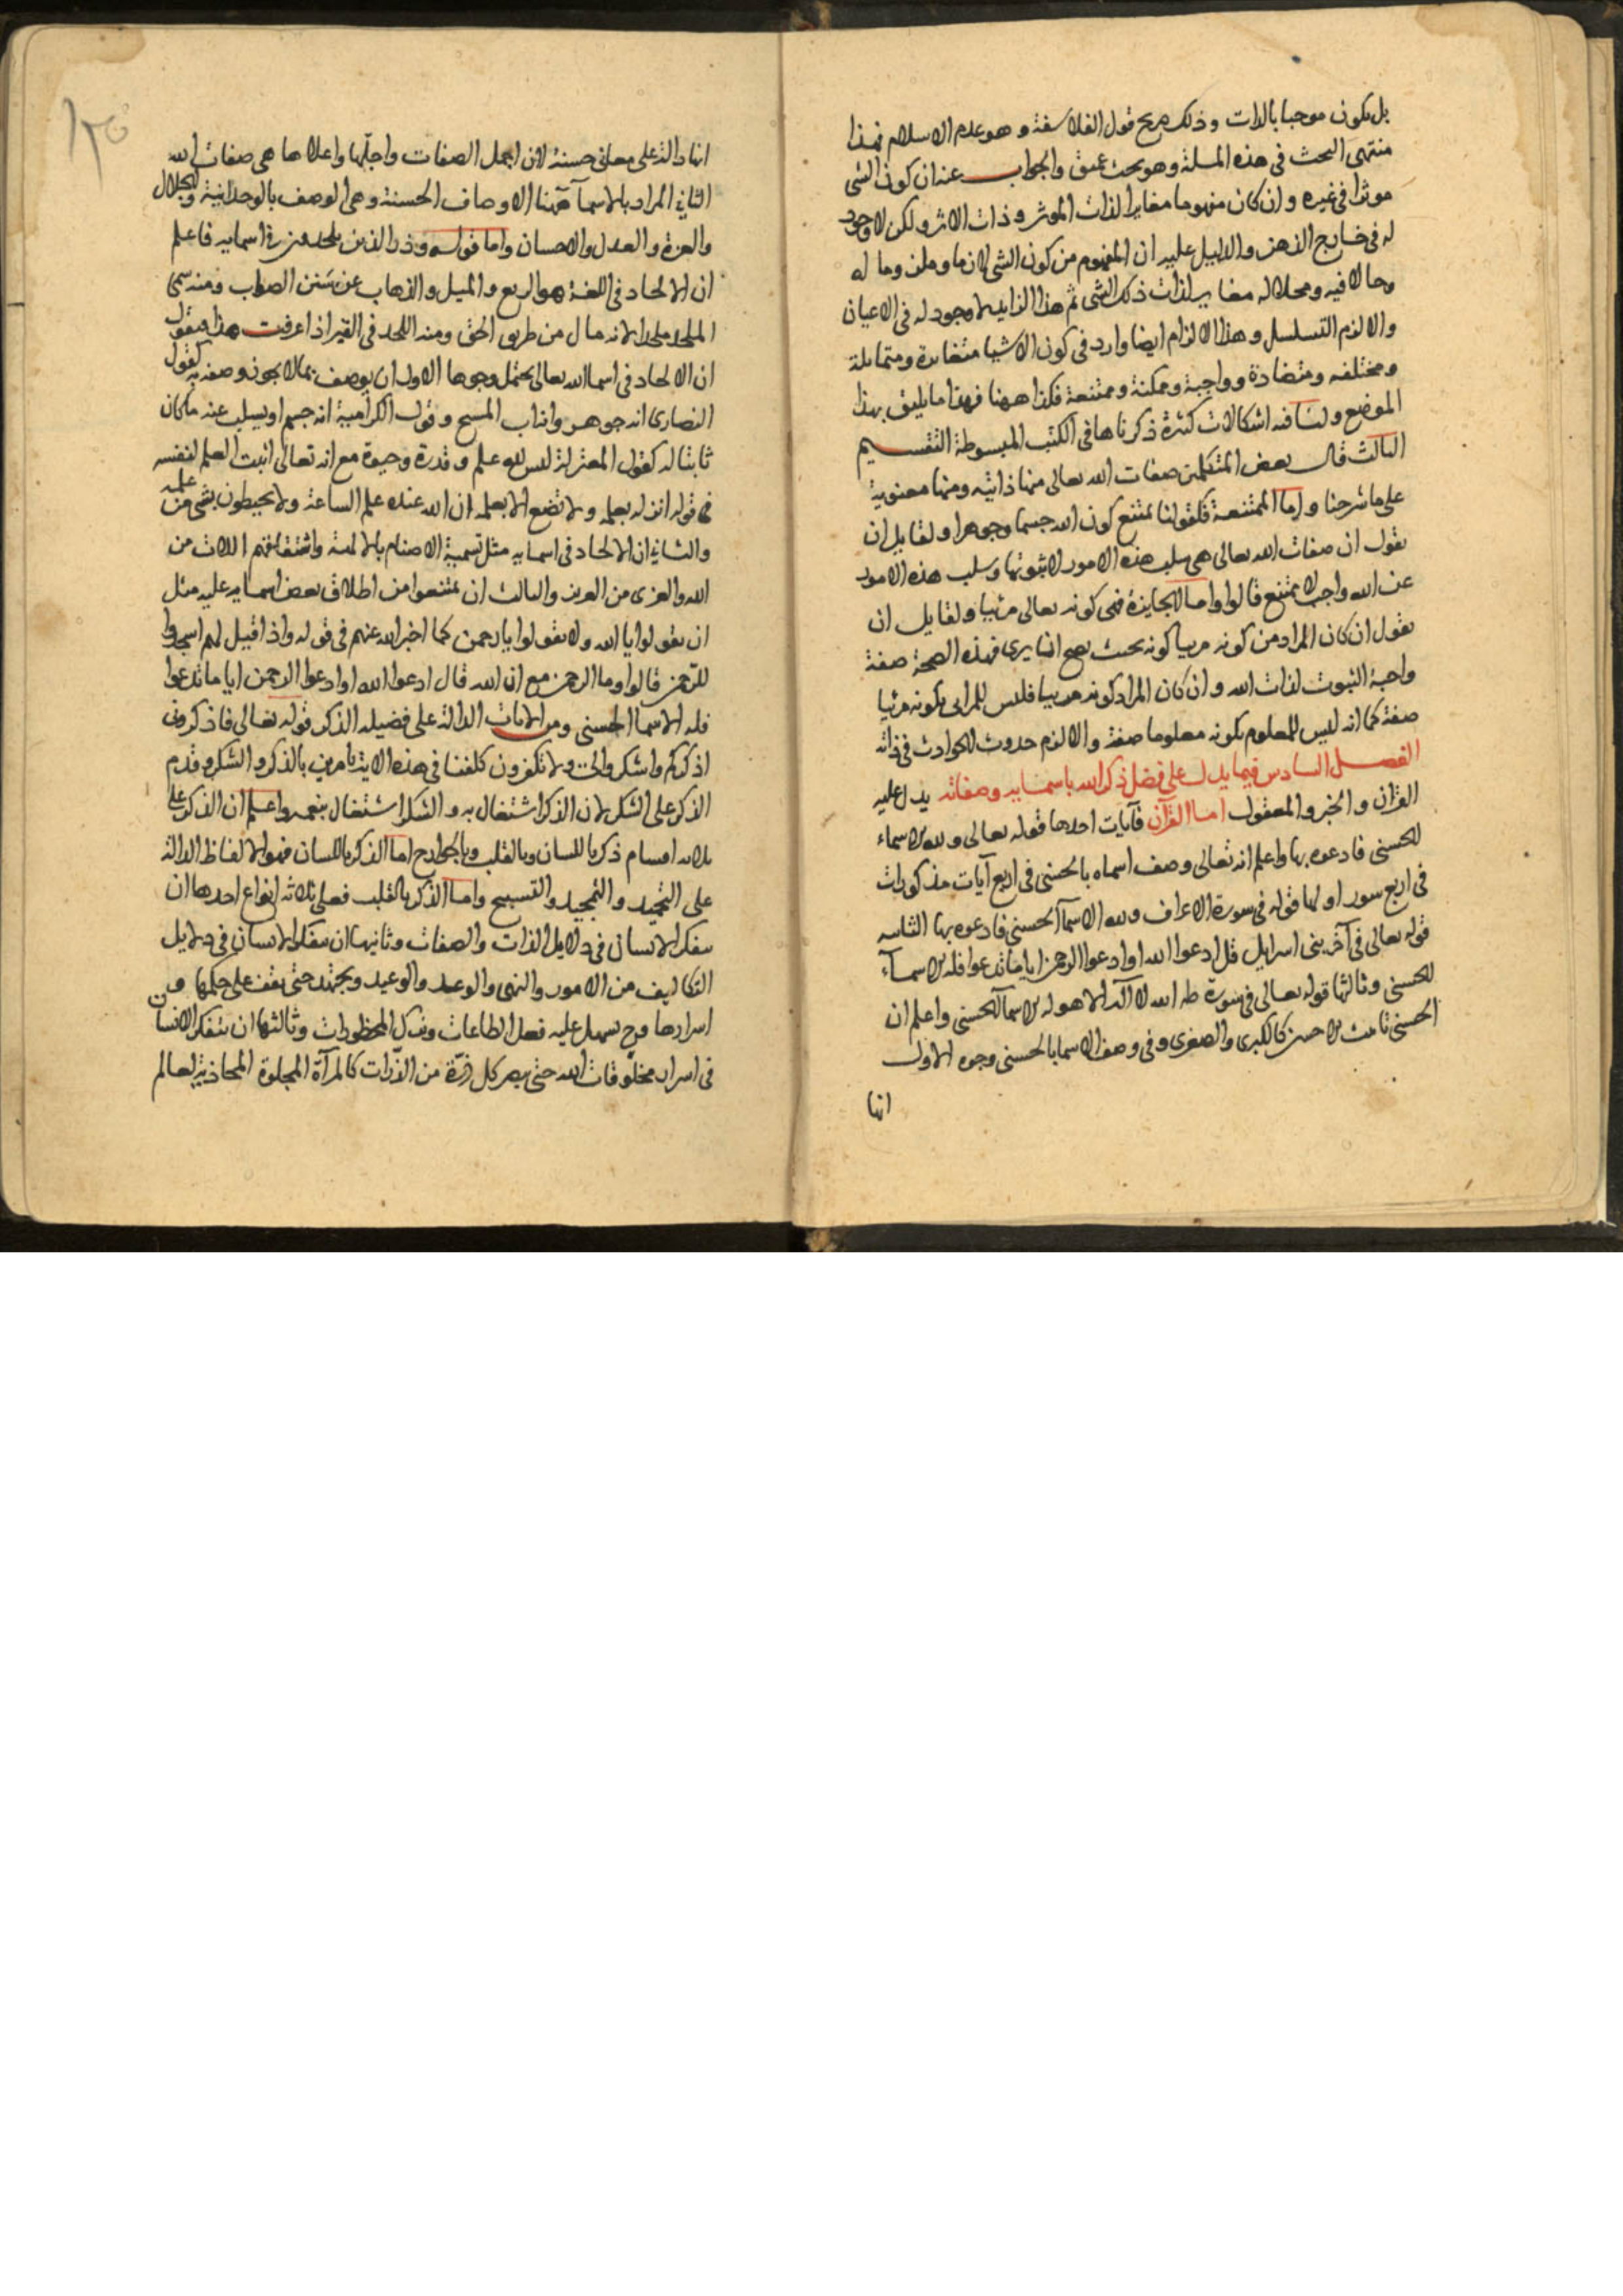 بل يكون موجبا بالذات وذلك صريح قول الفلاسفة وهو عدم الاسلام فهذا
منتهى البحث فى هذه المسلة وهو بحث عميق والجواب عنه ان كون الشى
موثرا فى غيره وان كان مفهوما مغايرا لذات الموثر وذات الاثر ولكن لا وجود
له فى خارج الذهن والدليل عليه ان المفهوم من كون الشى لازما وملزوما له
وحالا فيه ومحلا له مغاير لذات ذلك الشى ثم هذا الزايد لا وجود له فى الاعيان
والا لزم التسلسل وهذا الالزام ايضا وارد فى كون الاشيا متغايرة ومتماثلة
ومختلفه ومتضادة وواجبة وممكنة وممتنعة فكذا ههنا فهذا ما يليق بهذا
الموضع ولنا فيه اشكالات كثيرة ذكرناها فى الكتب المبسوطة التقسيم
الثالث قال بعض المتكلمين صفات الله تعالى منها ذاتيه ومنها معنوية
على ما شرحنا واما الممتنعة فكقولنا يمتنع كون الله جسما وجوهرا ولقايل ان
يقول ان صفات الله تعالى هى سلب هذه الامور لا ثبوتها وسلب هذه الامور
عن الله واجب لا ممتنع قالوا واما الجايزة فهى كونه تعالى مرئيا ولقايل ان
يقول ان كان المراد من كونه مريا كونه بحيث يصح ان يرى فهذه الصحة صفة
واجبة الثبوت لذات الله وان كان المراد كونه مرييا فليس للمرئى بكونه مرئيا
صفة كما انه ليس للمعلوم بكونه معلوما صفة والا لزم حدوث الحوادث فى ذاته
الفصل السادس فيما يدل على فضل ذكر الله باسمايه وصفاته يدل عليه
القرآن والخبر والمعقول اما القرآن فآيات احدها قوله تعالى ولله الاسماء
الحسنى فادعوه بها واعلم انه تعالى وصف اسماه بالحسنى فى اربع آيات مذكورات
فى اربع سور اولها قوله فى سورة الاعراف ولله الاسمآ الحسنى فادعوه بها الثانيه
قوله تعالى فى آخر بنى اسرايل قل ادعوا الله او ادعوا الرحمن ايا ما تدعوا فله الاسمآء
الحسنى وثالثها قوله تعالى فى سورة طه الله لا آله الا هو له الاسمآ الحسنى واعلم ان
الحسنى تانيث الاحسن كالكبرى والصغرى وفى وصف الاسما بالحسنى وجوه الاول
انها
١٢٥
انها دالة على معانى حسنة لان اجمل الصفات واجلّها واعلاها هى صفات الله
الثانى المراد بالاسمآ ههنا الاوصاف الحسنة وهى الوصف بالوحدانية والجلال
والعزة والعدل والاحسان واما قوله وذروا الذين يلحدون فى اسمايه فاعلم
ان الالحاد فى اللغة هو الزيغ والميل والذهاب عن سَنن الصواب ومنه سمى
الملحد ملحدا لانه مال من طريق الحق ومنه اللحد فى القبر اذا عرفت هذا فنقول
ان الالحاد فى اسما الله تعالى يحتمل وجوها الاول ان يوصف بما لا يجوز وصفه به كقول
النصارى انه جوهر وانه اب المسيح وقول الكرامية انه جسم او يسلب عنه ما كان
ثابتا له كقول المعتزلة ليس لله علم وقدرة وحيوة مع انه تعالى اثبت العلم لنفسه
فى قوله انزله بعلمه ولا تضع الا بعلمه ان الله عنده علم الساعة ولا يحيطون بشى من علمه
والثانى ان الالحاد فى اسمايه مثل تسمية الاصنام بالالهة واشتقاقهم اللات من
الله والعزى من العزيز والثالث ان يمتنعوا من اطلاق بعض اسمايه عليه مثل
ان يقولوا يا الله ولا يقولوا يا رحمن كما اخبر الله عنهم فى قوله واذا قيل لهم اسجدوا
للرحمن قالوا وما الرحمن مع ان الله قال ادعوا الله او ادعوا الرحمن ايا ما تدعوا
فله الاسما الحسنى ومن الايات الدالة على فضيلة الذكر قوله تعالى فاذكرونى
اذكركم واشكروا لى ولا تكفرون كلفنا فى هذه الاية بامرين بالذكر والشكر وقدم
الذكر على الشكر لان الذكر اشتغال به والشكر اشتغال بنعمه واعلم ان الذكر على
ثلاثه اقسام ذكر باللسان وبالقلب وبالجوارح اما الذكر باللسان فهو الالفاظ الدالة
على التحميد والتمجيد والتسبيح واما الذكر بالقلب فعلى ثلاثه انواع احدها ان
يتفكر الانسان فى دلايل الذات والصفات وثانيها ان يتفكر الانسان فى دلايل
التكاليف من الامور والنهى والوعد والوعيد ويجتهد حتى يقف على حكمها و
اسرارها وح يسهل عليه فعل الطاعات وترك المحظورات وثالثها ان يتفكر الانسان
فى اسرار مخلوقات الله حتى يصير كل ذرّة من الذّرات كالمرآة المجلوة المحاذية لعالم